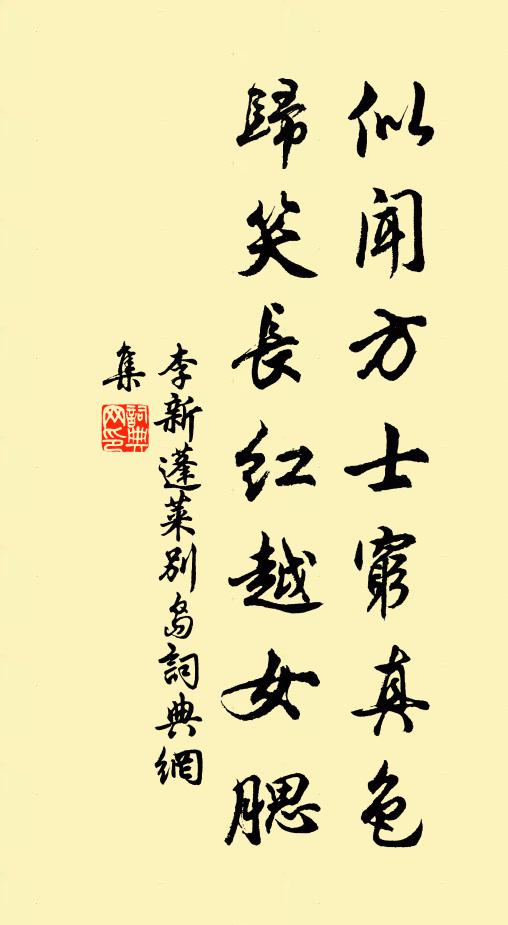 似闻方士窮真色
歸笑長红越女腮
李新蓬莱别岛詞典網
集
詞典网印